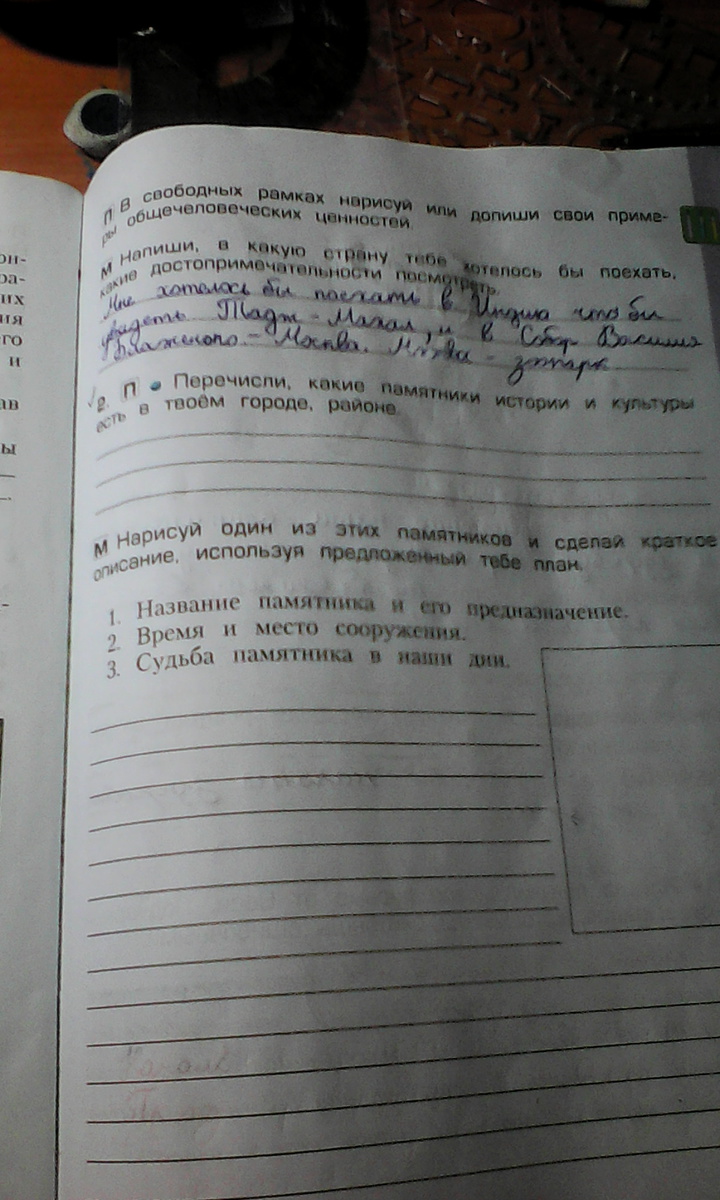 П В свободных рамках нарисуй или допиши свои приме-
ры общечеловеческих ценностей.
М Напиши, в какую страну тебе хотелось бы поехать,
какие достопримечательности посмотреть.
Мне хотелось бы поехать в Индию что бы
увидеть Тадж-Махал, и в Сбор Василия
Блаженого - Москва. Москва - зоопарк
2. П • Перечисли, какие памятники истории и культуры
есть в твоём городе, районе.
М Нарисуй один из этих памятников и сделай краткое
описание, используя предложенный тебе план.
1. Название памятника и его предназначение.
2. Время и место сооружения.
3. Судьба памятника в наши дни.
он-
ра-
их
ия
го
и
ав
ы